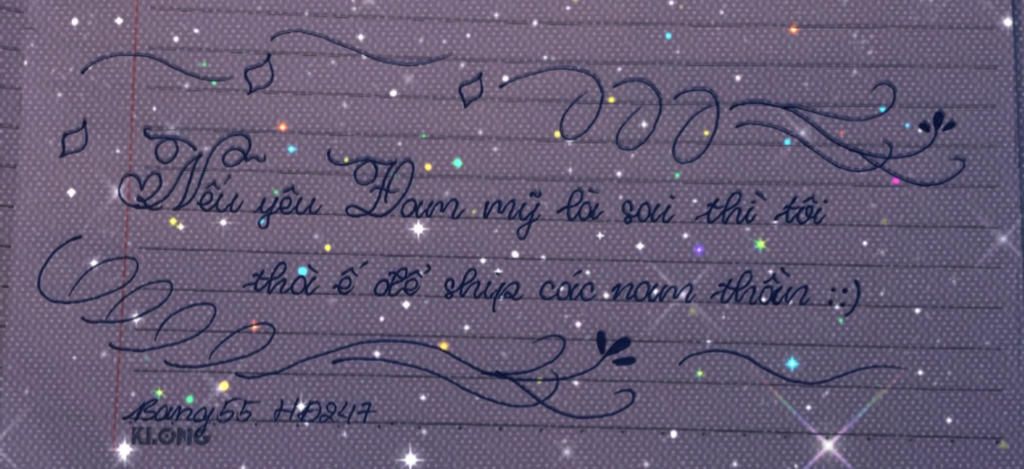 Nếu yêu Đam mỹ là sai thì tôi
thà ế để ship các nam thần ::)
Bang55 HĐ247
KI.ONG